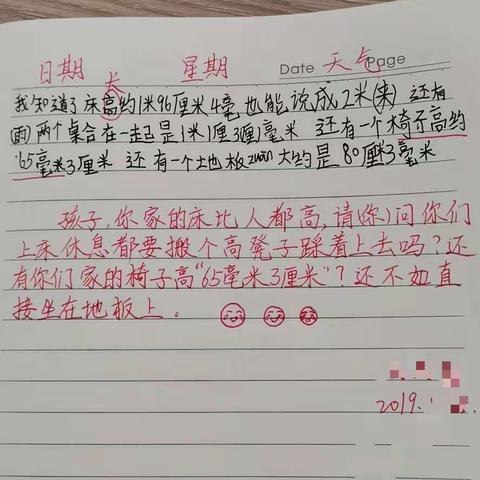 日期 星期 Date 天气 Page
长
我知道了床高约1米96厘米4毫 也能说成2米(来) 还有
(雨)两个桌合在一起是1米1厘3厘)毫米 还有一个椅子高约
65毫米3厘米 还有一个土地板zuan大约是80厘米3毫米
孩子,你家的床比人都高,请(你)问你们
上床休息都要搬个高凳子踩着上去吗?还
有你们家的椅子高“65毫米3厘米”?还不如直
接坐在地板上。
2019.